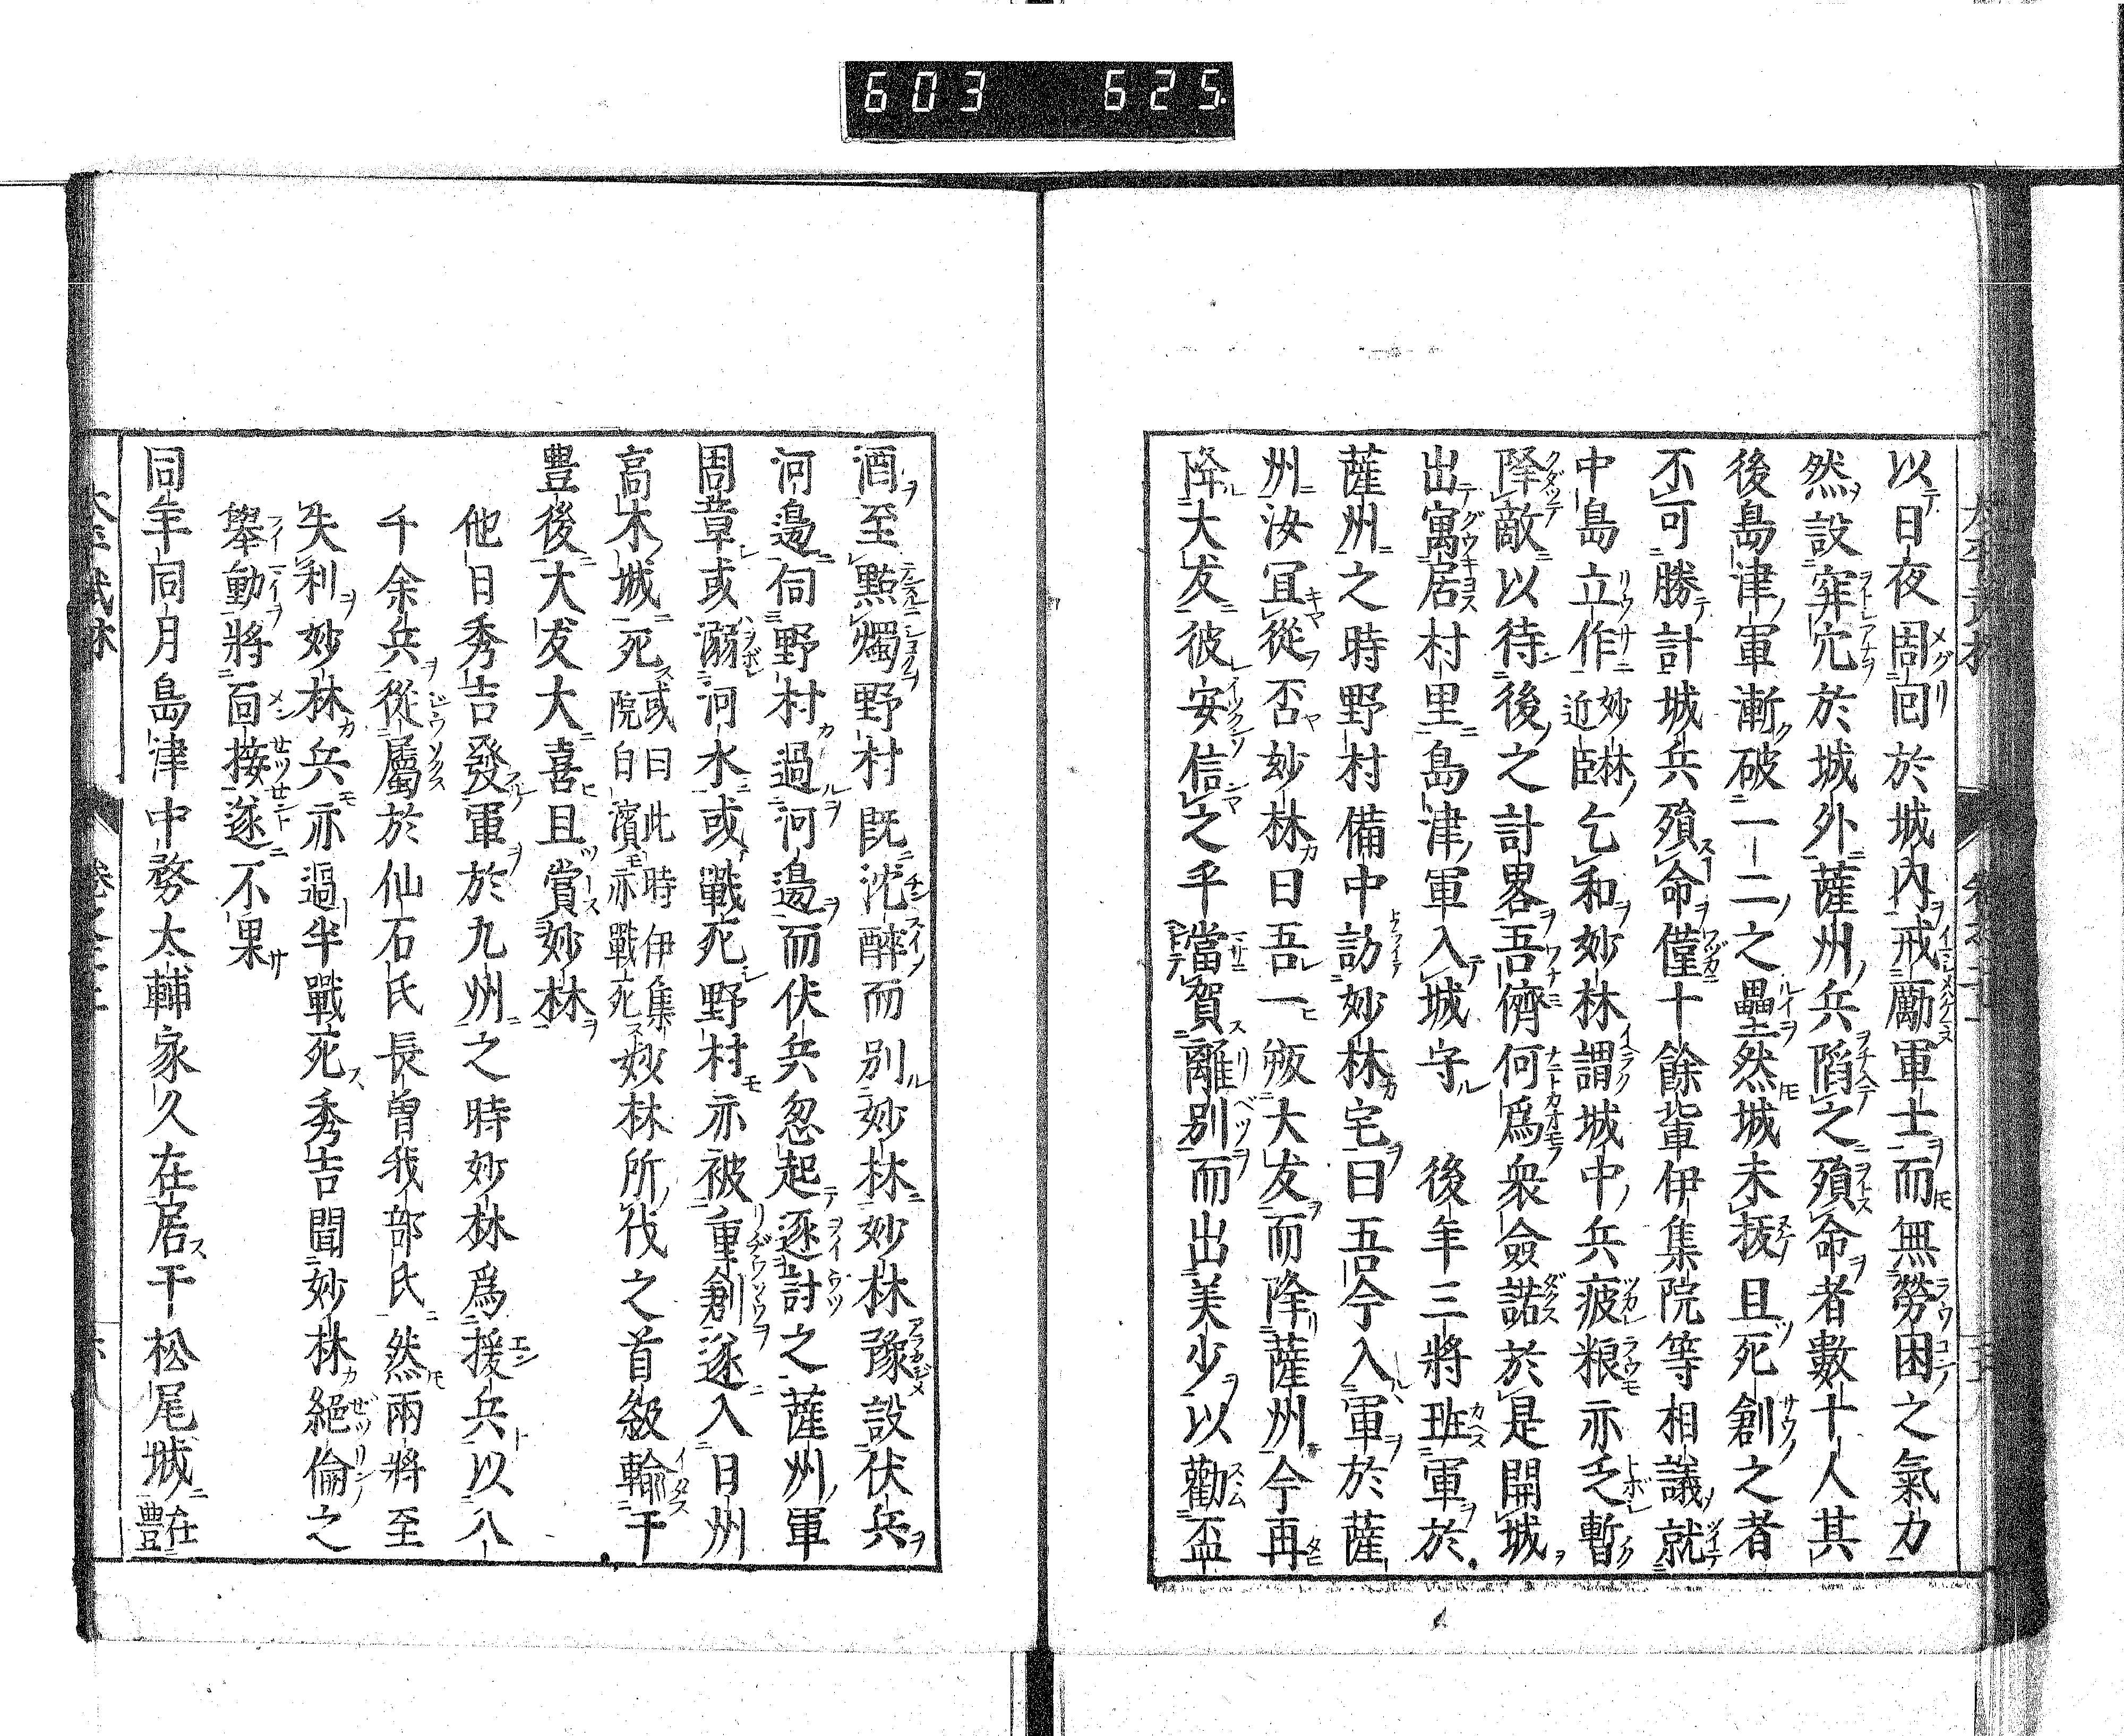 603 625
以日夜周回於城内戒勵軍士而無勞困之氣力
然設穽穴於城外薩州兵陷之殞命者數十人其
後島津軍漸破一二之壘然城未拔且死創之者
不可勝計城兵殞命僅十餘輩伊集院等相議就
中島立作妙林近臣乞和妙林謂城中兵疲粮亦乏暫
降敵以待後之計畧吾儕何爲衆僉諾於是開城
出寓居村里島津軍入城守 後年三將班軍於
薩州之時野村備中訪妙林宅曰吾今入軍於薩
州汝冝從否妙林曰吾一叛大友而降薩州今再
降大友彼安信之乎當賀離別而出美少以勸盃
酒至點燭野村既沈醉而別妙林妙林豫設伏兵
河邊伺野村過河邊而伏兵忽起逐討之薩州軍
周章或溺河水或戰死野村亦被重創遂入日州
高木城死或曰此時伊集院白濱亦戰死妙林所伐之首級輸于
豊後大友大喜且賞妙林
他日秀吉發軍於九州之時妙林爲援兵以八
千余兵從屬於仙石氏長曽我部氏然兩將至
失利妙林兵亦過半戰死秀吉聞妙林絕倫之
擧動將面接遂不果
同年同月島津中務太輔家久在居于松尾城在豊